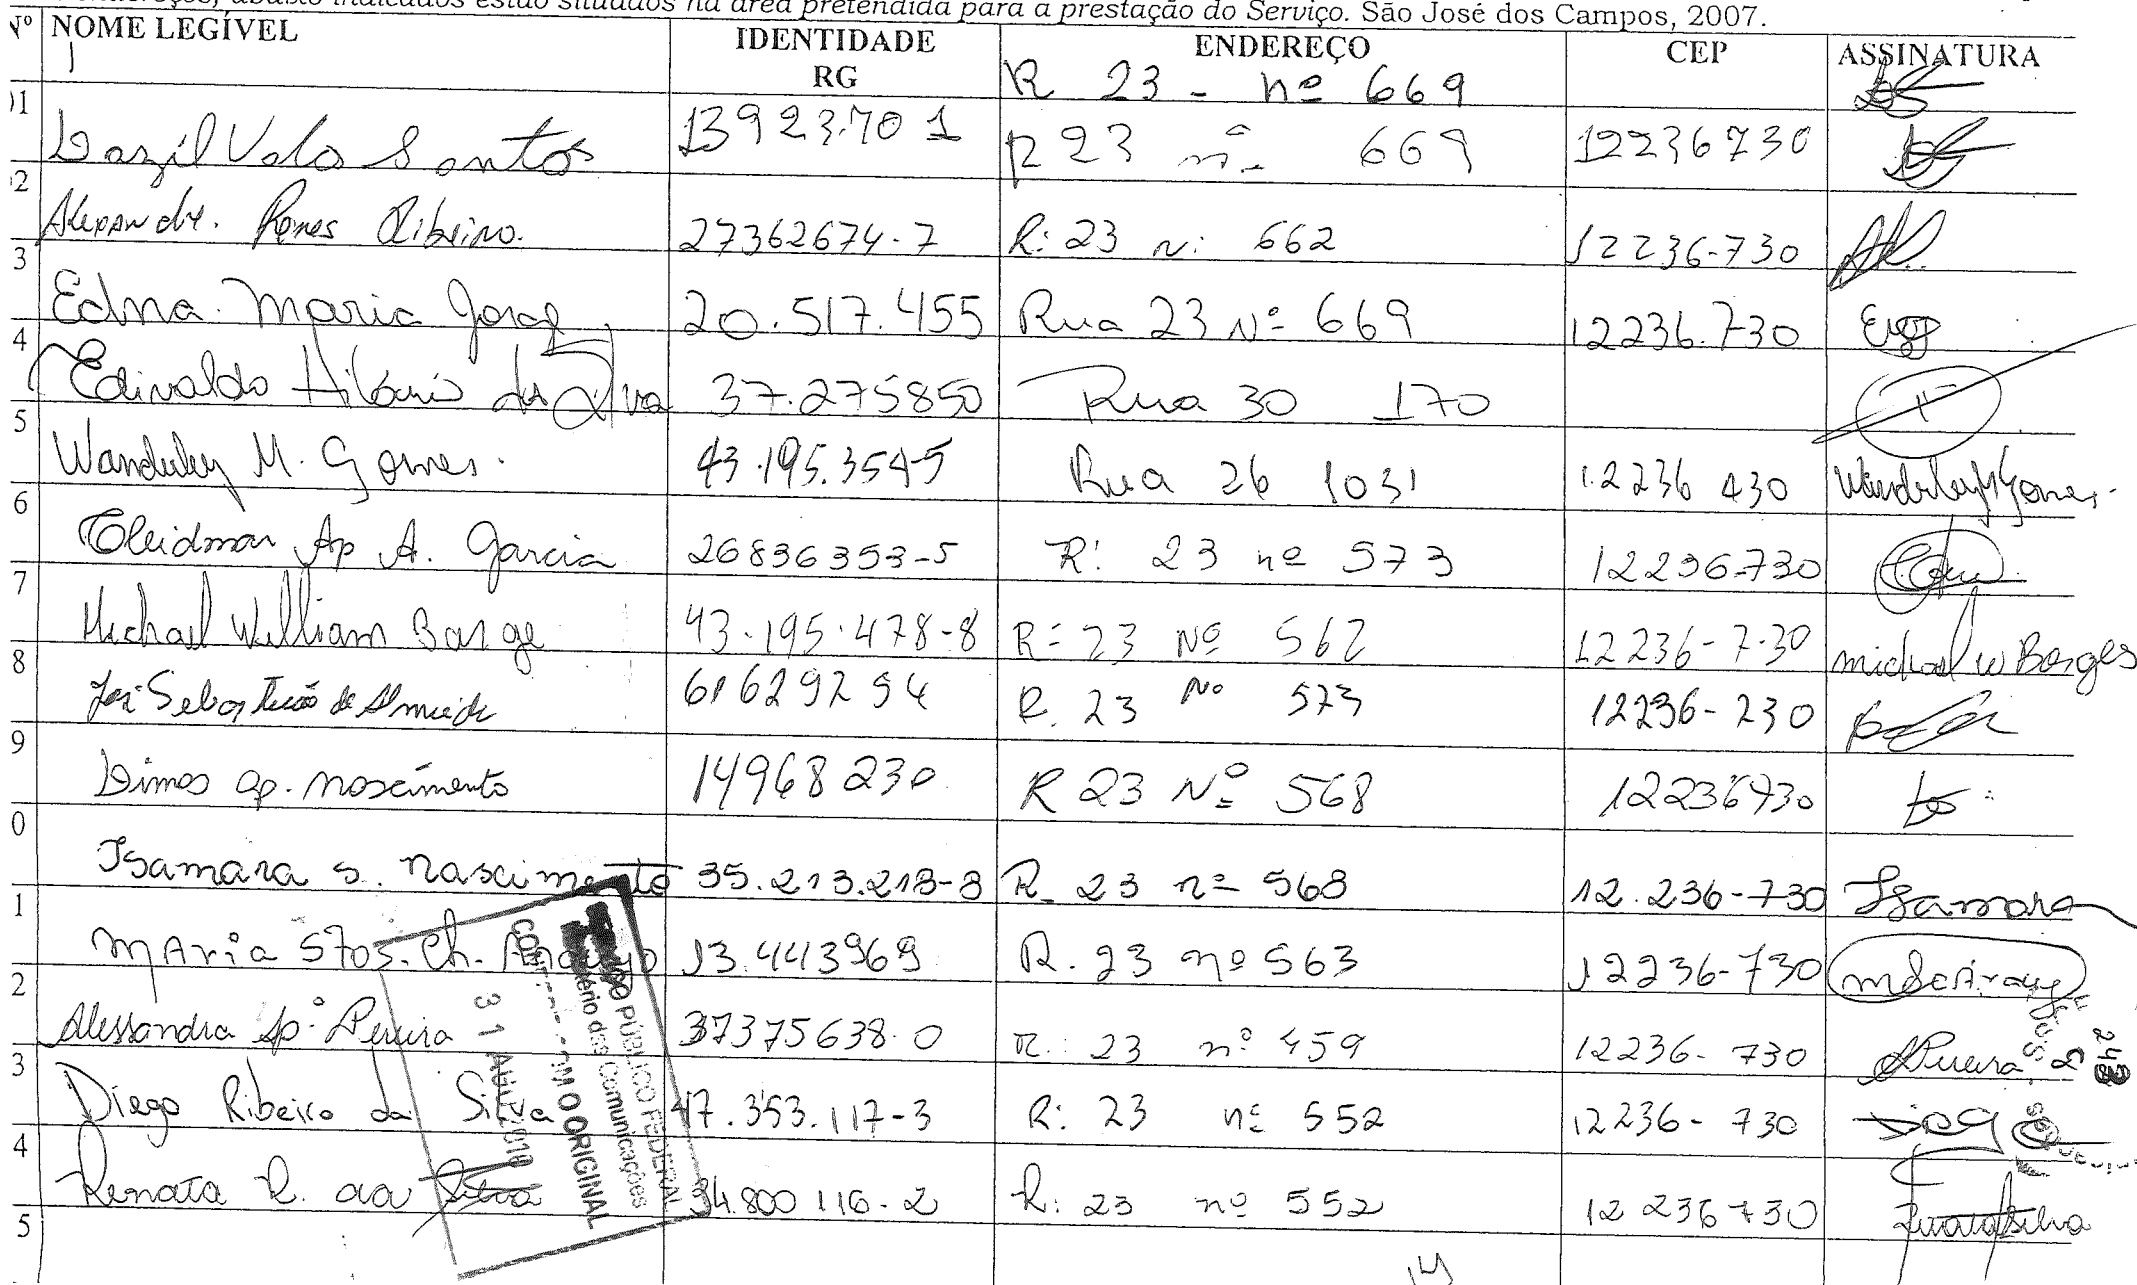 abaixo indicados estão situados na área pretendida para a prestação do Serviço. São José dos Campos, 2007.
Nº NOME LEGÍVEL IDENTIDADE RG ENDEREÇO CEP ASSINATURA
R 23 - nº 669
01
Santos 13923.70 1 R 23 nº 669 12236730
02
Ribeiro. 27362674-7 R: 23 N: 662 12236-730
3
Edna Maria 20.517.455 Rua 23 Nº 669 12236.730
4
Edivaldo da Silva 37.275850 Rua 30 170
5
Wanderley M. Gomes. 43.195.354-5 Rua 26 1031 12236 430 Wanderley M Gomes.
6
Ap A. Garcia 26836353-5 R: 23 nº 573 12236-730
7
Michael William Borge 43-195-478-8 R: 23 Nº 562 12236-7-30 michael w Borges
8
de Almeida R. 23 Nº 573 12236-230
9
ap. nascimento 14968230 R 23 Nº 568 12236730
0
Isamara s. nascimento 35.213.218-8 R. 23 nº 568 12.236-730 Isamara
1
MAria Stos. Ch. Araujo 13.443969 R. 23 nº 563 12236-730
2
Alessandra Apª Pereira 37375638-0 R.: 23 nº 459 12236-730 APereira
3
Diego Ribeiro da Silva 47.353.117-3 R: 23 nº 552 12236-730
4
Renata R. da Silva 34.800 116-2 R: 23 nº 552 12 236 730
5
PÚBLICO FEDERAL
das Comunicações
O ORIGINAL
243
14